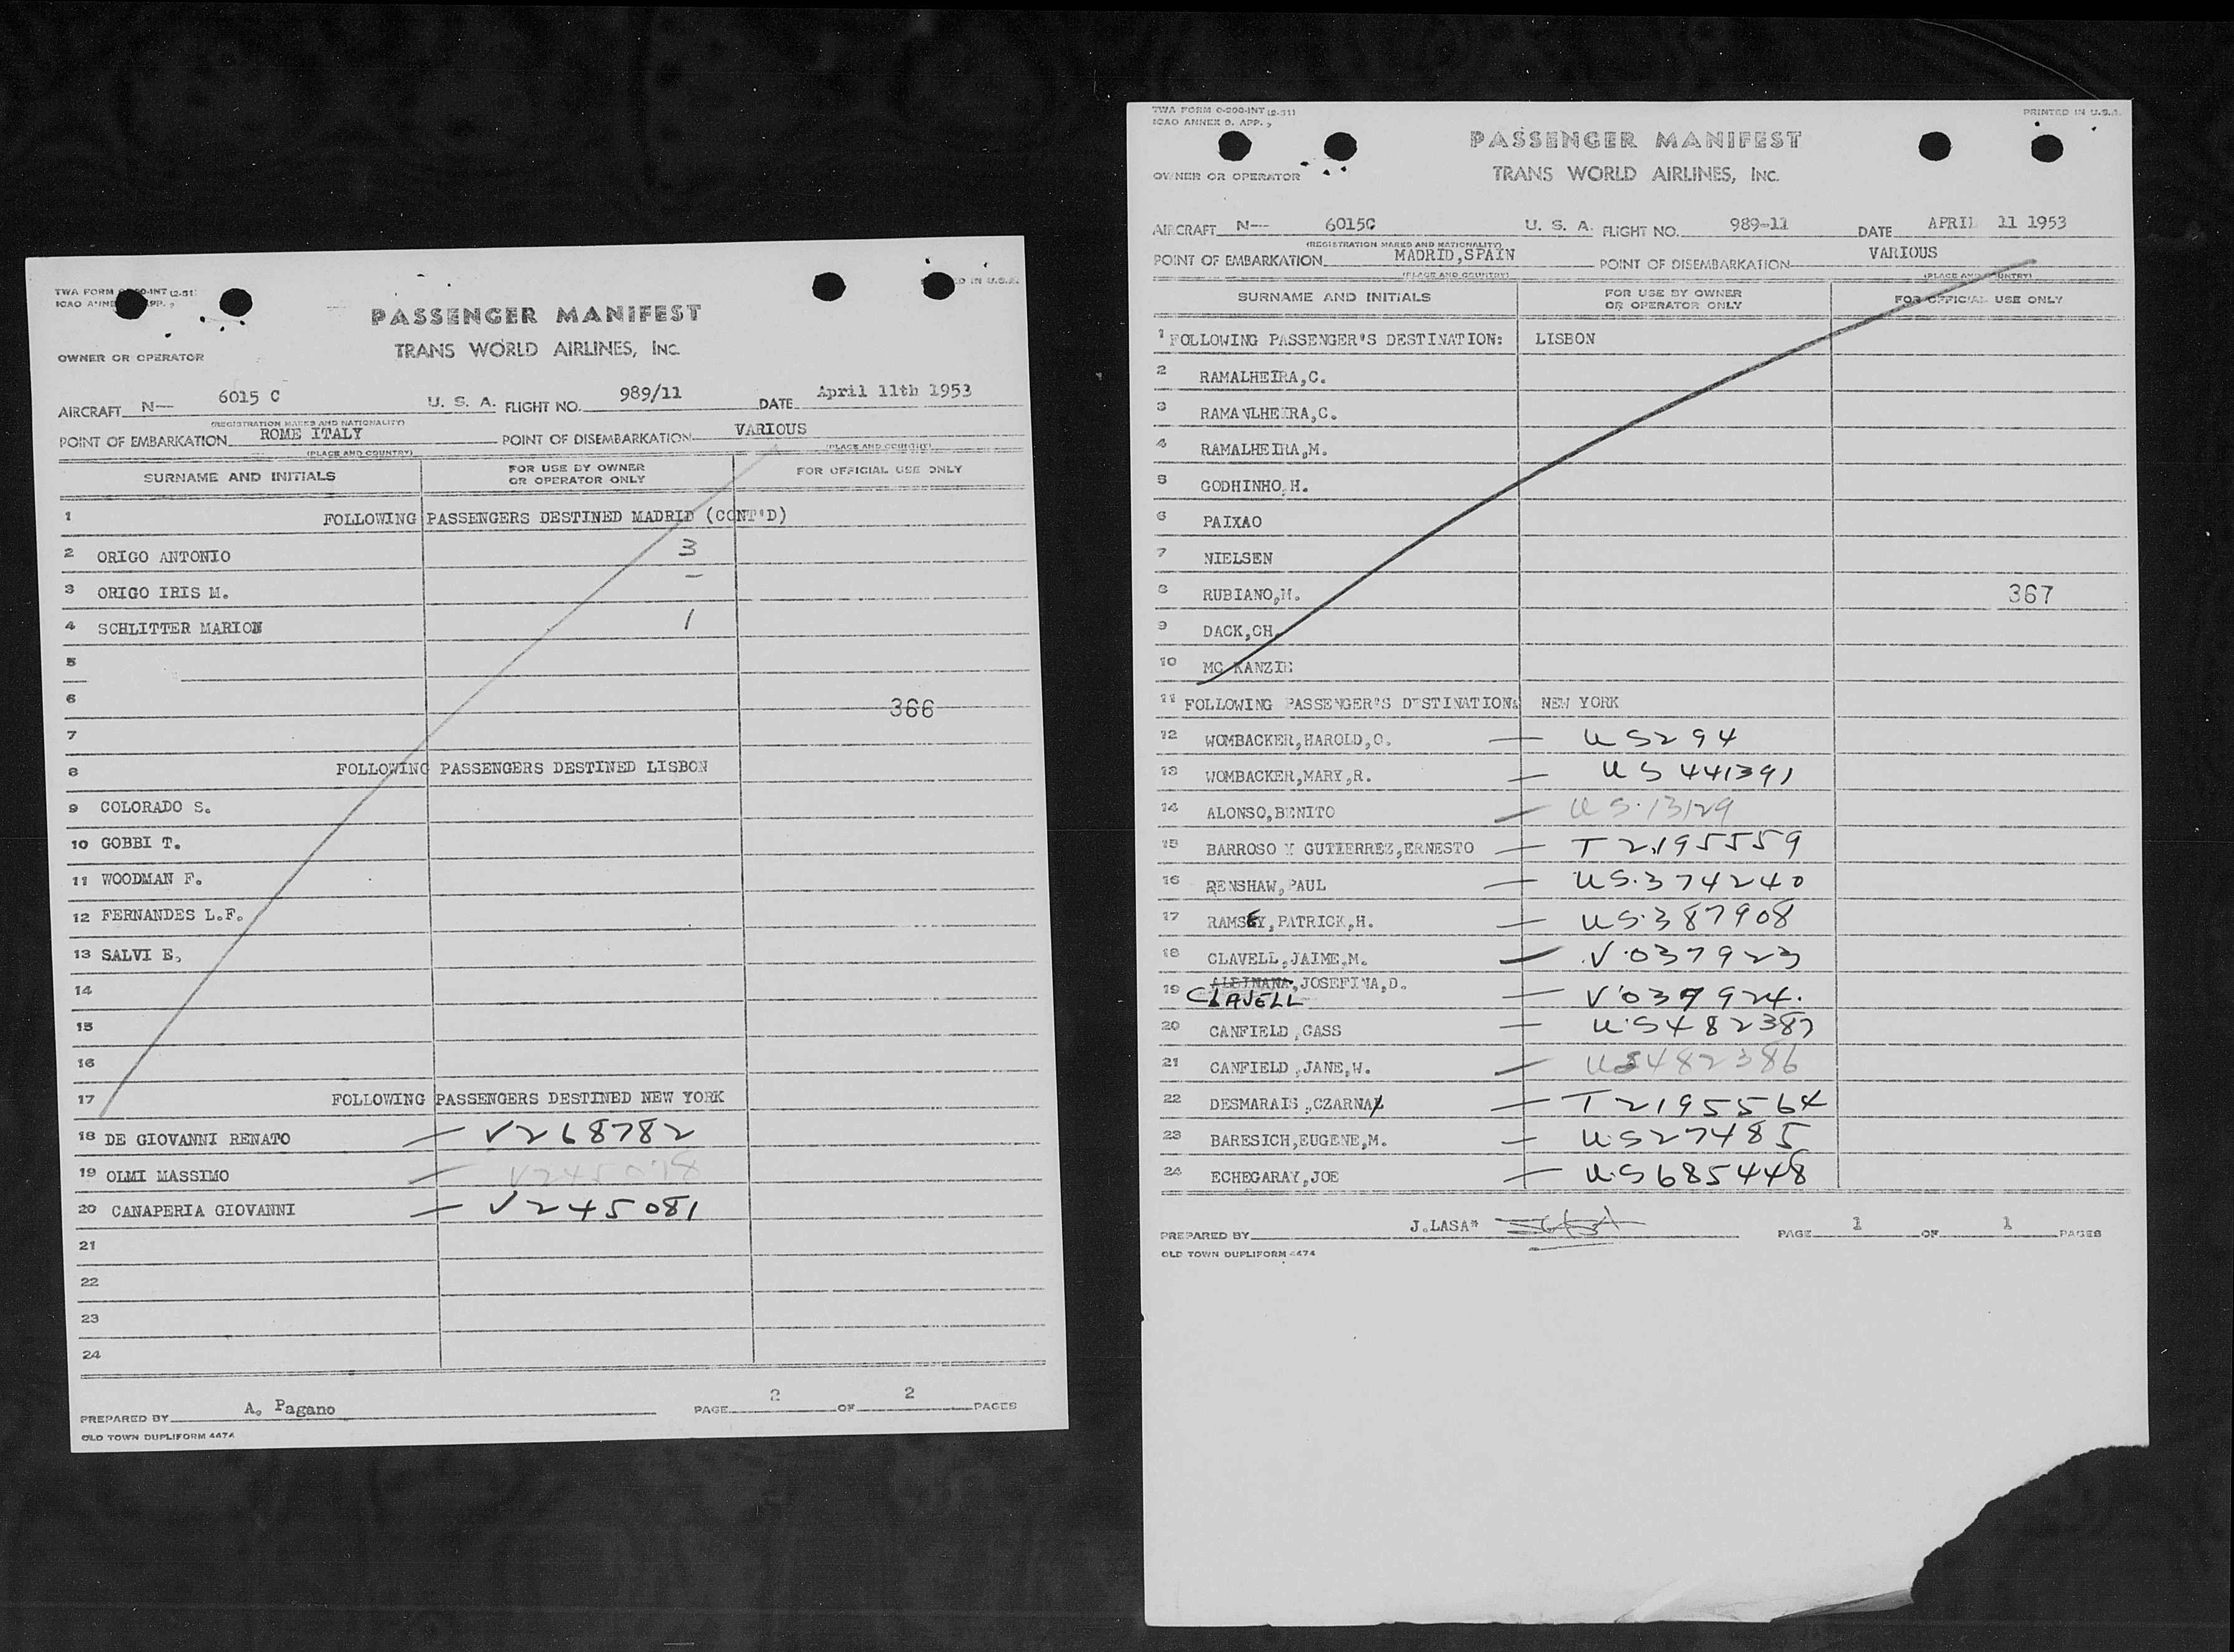 TWA FORM O-200-INT (2-51)
ICAO ANNEX 9, APP.
OWNER OR OPERATOR
PASSENGER MANIFEST
TRANS WORLD AIRLINES, INC.
AIRCRAFT N-- 6015 C U. S. A. FLIGHT NO. 989/11 DATE April 11th 1953
(REGISTRATION MARKS AND NATIONALITY)
POINT OF EMBARKATION ROME ITALY POINT OF DISEMBARKATION VARIOUS
(PLACE AND COUNTRY) (PLACE AND COUNTRY)
SURNAME AND INITIALS FOR USE BY OWNER OR OPERATOR ONLY FOR OFFICIAL USE ONLY
1 FOLLOWING PASSENGERS DESTINED MADRID (CONT'D)
2 ORIGO ANTONIO 3
3 ORIGO IRIS M. –
4 SCHLITTER MARION 1
5
6 366
7
8 FOLLOWING PASSENGERS DESTINED LISBON
9 COLORADO S.
10 GOBBI T.
11 WOODMAN F.
12 FERNANDES L.F.
13 SALVI E,
14
15
16
17 FOLLOWING PASSENGERS DESTINED NEW YORK
18 DE GIOVANNI RENATO — V268782
19 OLMI MASSIMO — V245078
20 CANAPERIA GIOVANNI — V245081
21
22
23
24
PREPARED BY A. Pagano PAGE 2 OF 2 PAGES
OLD TOWN DUPLIFORM 4474
TWA FORM O-200-INT (2-51)
ICAO ANNEX 9, APP.
PRINTED IN U.S.A.
OWNER OR OPERATOR
PASSENGER MANIFEST
TRANS WORLD AIRLINES, INC.
AIRCRAFT N-- 6015C U. S. A. FLIGHT NO. 989-11 DATE APRIL 11 1953
(REGISTRATION MARKS AND NATIONALITY)
POINT OF EMBARKATION MADRID,SPAIN POINT OF DISEMBARKATION VARIOUS
(PLACE AND COUNTRY) (PLACE AND COUNTRY)
SURNAME AND INITIALS FOR USE BY OWNER OR OPERATOR ONLY FOR OFFICIAL USE ONLY
1 FOLLOWING PASSENGER'S DESTINATION: LISBON
2 RAMALHEIRA,C.
3 RAMAVLHEIRA,C.
4 RAMALHEIRA,M.
5 GODHINHO,H.
6 PAIXAO
7 NIELSEN
8 RUBIANO,M. 367
9 DACK,CH.
10 MC KANZIE
11 FOLLOWING PASSENGER'S DESTINATION: NEW YORK
12 WOMBACKER,HAROLD,O. — US294
13 WOMBACKER,MARY,R. — US 441391
14 ALONSO,BENITO — US.13129
15 BARROSO Y GUTIERREZ,ERNESTO — T 2195559
16 RENSHAW,PAUL — US.374240
17 RAMSEY,PATRICK,H. — US.387908
18 CLAVELL,JAIME,M. — V.037923
19 ALBINANA,JOSEFINA,D. — V.037924.
CLAVELL
20 CANFIELD,CASS — U.S482387
21 CANFIELD,JANE,W. — US482386
22 DESMARAIS,CZARNA — T 2195564
23 BARESICH,EUGENE,M. — US27485
24 ECHEGARAY,JOE — US685448
PREPARED BY J.LASA* PAGE 1 OF 1 PAGES
OLD TOWN DUPLIFORM 4474